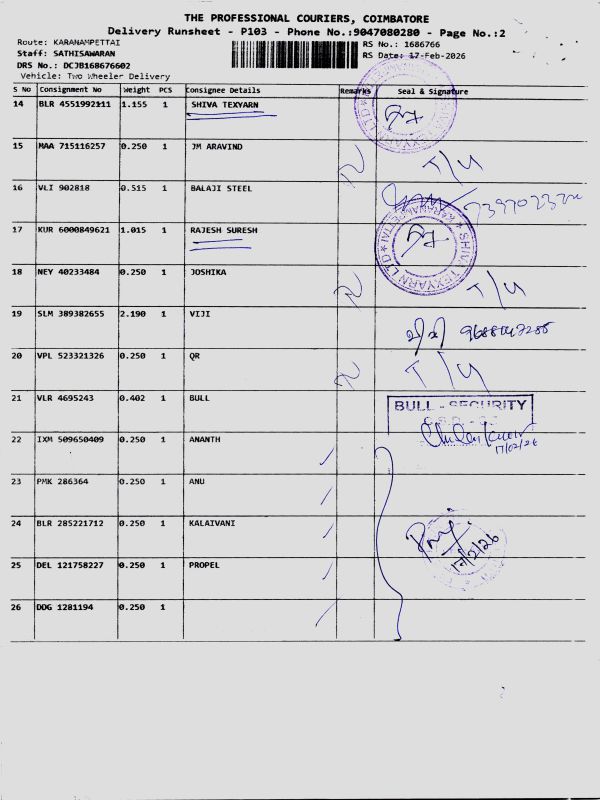 THE PROFESSIONAL COURIERS, COIMBATORE
Delivery Runsheet - P103 - Phone No.:9047080280 - Page No.:2
Route: KARANAMPETTAI
RS No.: 1686766
Staff: SATHISAWARAN
RS Date: 17-Feb-2026
DRS No.: DCJB168676602
Vehicle: Two Wheeler Delivery
S No Consignment No Weight PCS Consignee Details Remarks Seal & Signature
14 BLR 4551992111 1.155 1 SHIVA TEXYARN
15 MAA 715116257 0.250 1 JM ARAVIND T/4
16 VLI 902818 0.515 1 BALAJI STEEL
17 KUR 6000849621 1.015 1 RAJESH SURESH
SHIVA TEXYARN LTD KARANAMPETTAI
18 NEY 40233484 0.250 1 JOSHIKA T/4
19 SLM 389382655 2.190 1 VIJI
20 VPL 523321326 0.250 1 QR T/4
21 VLR 4695243 0.402 1 BULL
BULL - SECURITY
17/02/26
22 IXM 509650409 0.250 1 ANANTH
23 PMK 286364 0.250 1 ANU
24 BLR 285221712 0.250 1 KALAIVANI
17/2/26
25 DEL 121758227 0.250 1 PROPEL
26 DDG 1281194 0.250 1